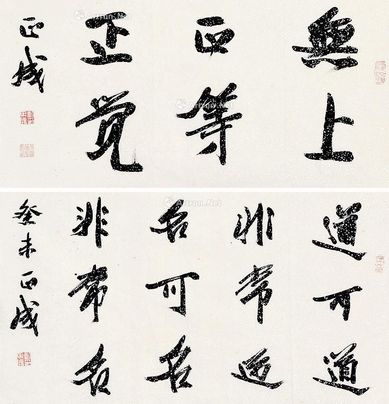 無上
正等
正觉
正成
道可道
非常道
名可名
非常名
癸未正成